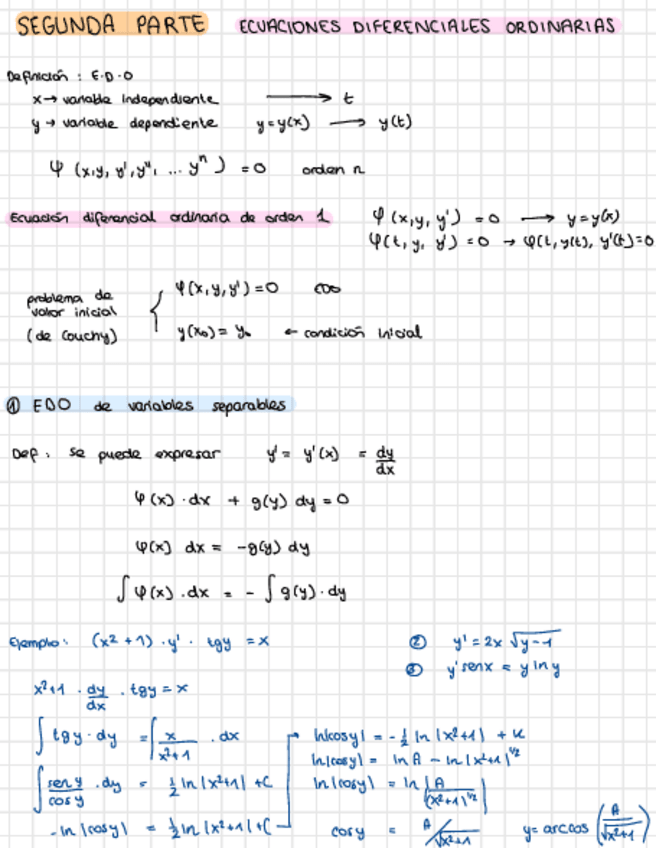 SEGUNDA PARTE ECUACIONES DIFERENCIALES ORDINARIAS
Definición : E.D.O
x → variable independiente ⟶ t
y → variable dependiente y = y(x) ⟶ y(t)
φ (x,y, y', y'', ... yⁿ ) = 0 orden n
Ecuación diferencial ordinaria de orden 1 φ (x,y, y') = 0 ⟶ y = y(x)
φ(t, y, y') = 0 → φ(t, y(t), y'(t) = 0
problema de valor inicial (de Couchy) { φ(x,y,y') = 0 EDO
y(x₀) = y₀ ← condición inicial
① EDO de variables separables
Def : se puede expresar y' = y'(x) = dy/dx
φ(x) · dx + g(y) dy = 0
φ(x) dx = -g(y) dy
∫ φ(x) . dx = - ∫ g(y) · dy
Ejemplo : (x² + 1) · y' · tgy = x
② y' = 2x √(y-1)
③ y' senx = y ln y
x²+1 · dy/dx · tgy = x
∫ tgy · dy = ∫ x/(x²+1) · dx
∫ sen y/cos y · dy = ½ ln |x²+1| + C
- ln |cosy| = ½ ln |x²+1| + C
ln|cosy| = - ½ ln |x²+1| + K
ln|cosy| = ln A - ln |x²+1|^½
ln |cosy| = ln |A/(x²+1)^½|
cosy = A/√(x²+1) y = arccos (A/√(x²+1))